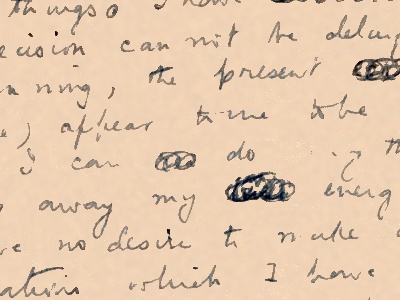 things. I have
ecision can not be delay
nning, the present
e) appear to me to be
I can do
away my energ
ve no desire to make
ations which I have